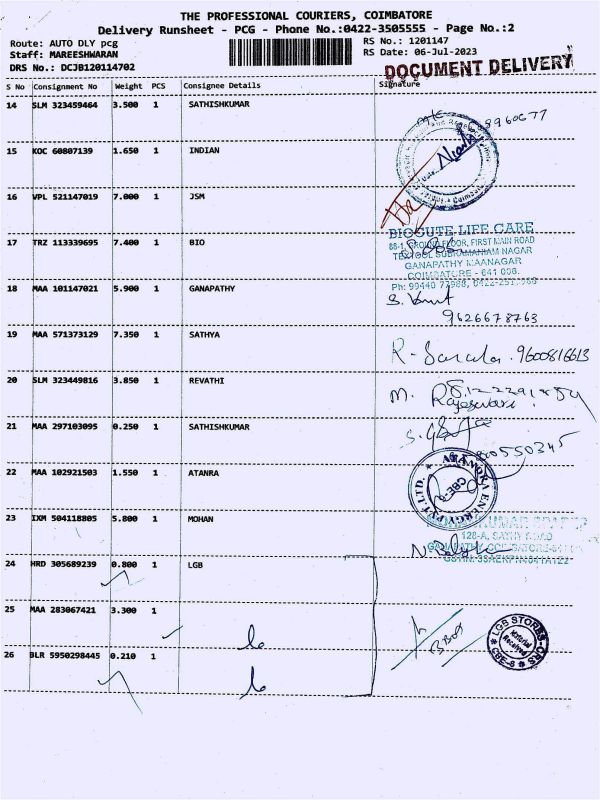 THE PROFESSIONAL COURIERS, COIMBATORE
Delivery Runsheet - PCG - Phone No.:0422-3505555 - Page No.:2
Route: AUTO DLY pcg
Staff: MAREESHWARAN
DRS No.: DCJB120114702
RS No.: 1201147
RS Date: 06-Jul-2023
DOCUMENT DELIVERY
S No Consignment No Weight PCS Consignee Details Signature
14 SLM 323459464 3.500 1 SATHISHKUMAR
15 KOC 60807139 1.650 1 INDIAN
16 VPL 521147019 7.000 1 JSM
17 TRZ 113339695 7.400 1 BIO
BIOCUTE LIFE CARE
88-1, GROUND FLOOR, FIRST MAIN ROAD
TEXTOOL SUBRAMANIAM NAGAR
GANAPATHY MAANAGAR
COIMBATORE - 641 006.
18 MAA 101147021 5.900 1 GANAPATHY
9626678763
19 MAA 571373129 7.350 1 SATHYA
R- Sarala. 9600816613
20 SLM 323449816 3.850 1 REVATHI
M. Rajeswari
21 MAA 297103095 0.250 1 SATHISHKUMAR
22 MAA 102921503 1.550 1 ATANRA
23 IXM 504118805 5.800 1 MOHAN
128-A, SATHY ROAD
24 HRD 305689239 0.800 1 LGB
25 MAA 283067421 3.300 1
LGB STORES-ORS
Material
Received
CBE-6
26 BLR 5950298445 0.210 1